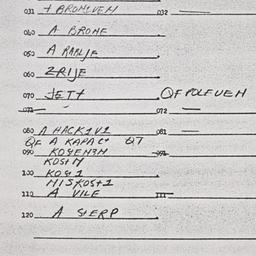 031 A BRONUVEM 032
040 A BRONE
050 A RANJE
060 ZRIJE
070 JETA QF POLEVEM
071 072
080 A HACKIVI 081
QF A KAPAC QT
090 KOSEMZM 091
KOSIM
100 KOSI
MISKOSTI
110 A VILE 111
120 A SIERP